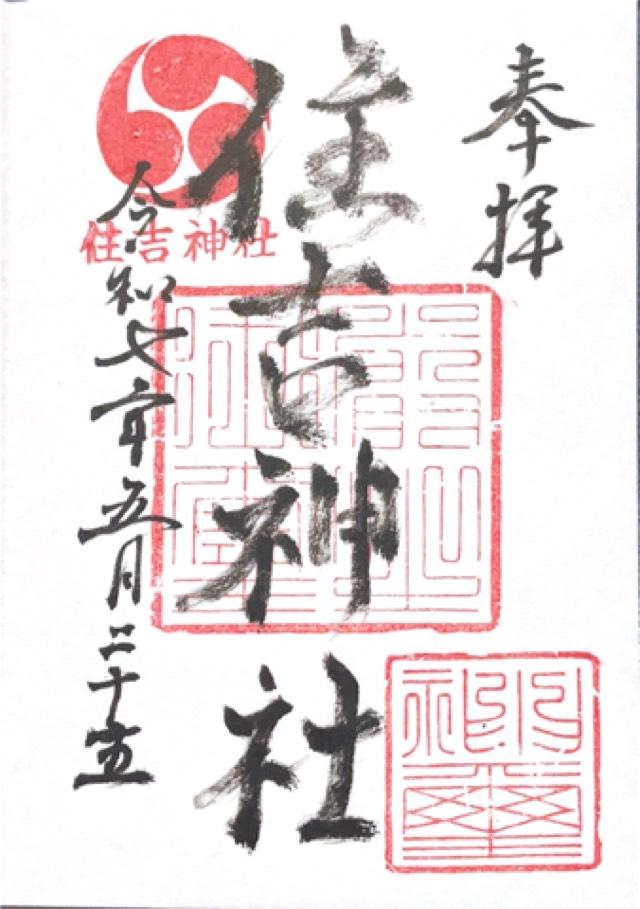 奉拝
住吉神社
住吉神社
令和七年五月二十五